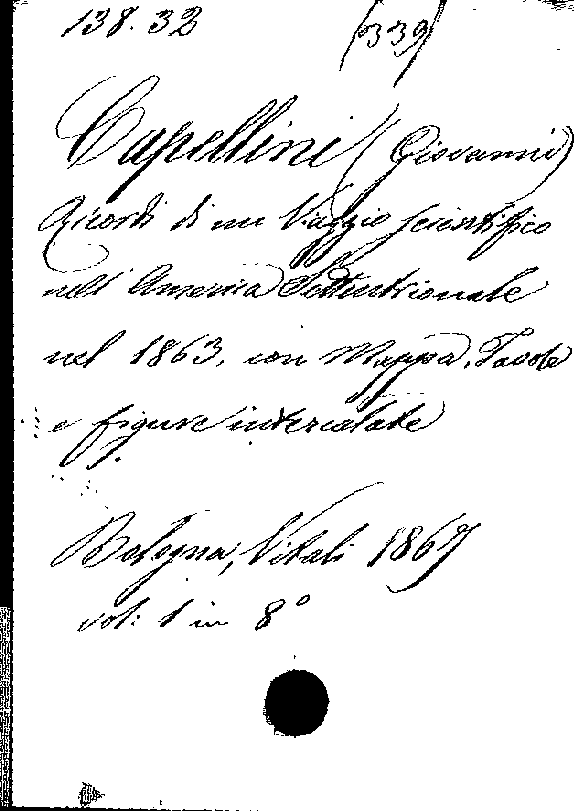 138.32 (339)
Capellini (Giovanni)
Ricordi di un Viaggio scientifico
nell' America Settentrionale
nel 1863, con Mappa, Tavole
e figure intercalate
Bologna, Vitali 1867
vol: 1 in 8°